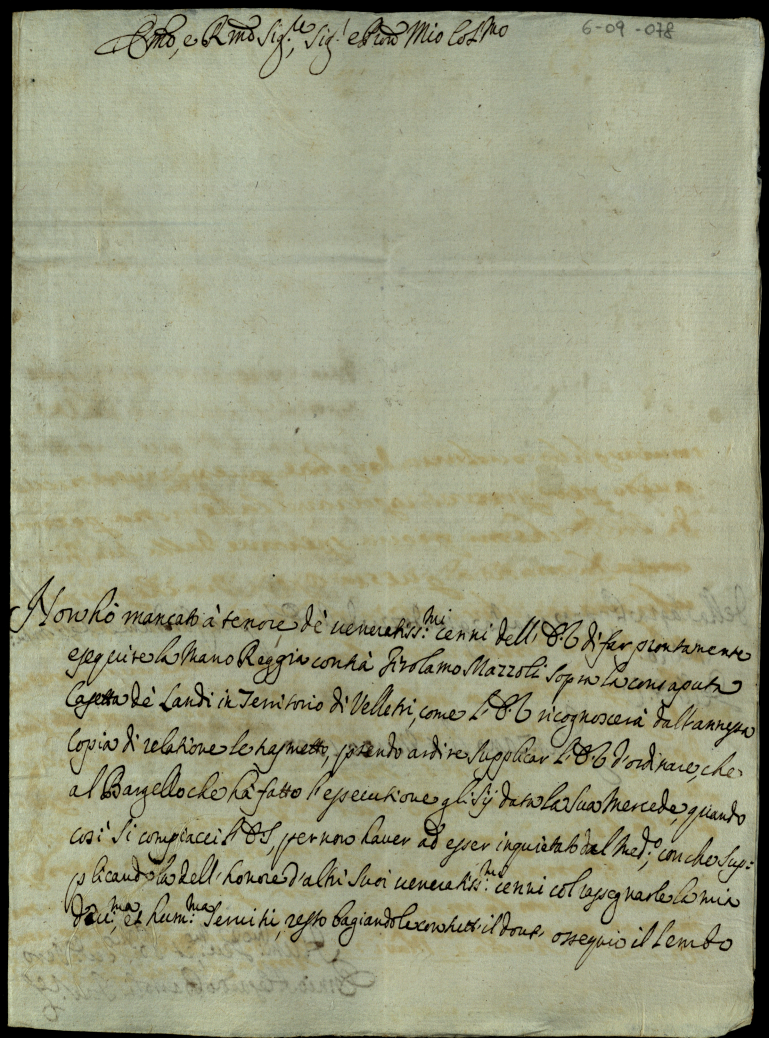 6-09-078
Emo, e Rmo Sig.re, Sig.r e Pron Mio Col.mo
Non hò mancato à tenore dè veneratiss.mi cenni dell' E.V. di far prontamente
eseguire la Mano Reggia contrà Girolamo Mazzoli sopra la consaputa
Casetta dè Landi in Territorio di Velletri, come l' E.V. ricognoscerà dall'annessa
Copia di relatione le trasmetto, prendo ardire supplicar l' E.V. d'ordinare, che
al Bargello che hà fatto l'essecutione gli sij data la sua Mercede, quando
così si compiacci l' E.V., per non haver ad esser inquietato dal Med.o, con che sup-
plicandola dell' honore d'altri suoi veneratiss.mi cenni col rassegnarle la mia
div.ma, et hum.ma Servitù, resto bagiandole con tutt' il dovut. ossequio il lembo